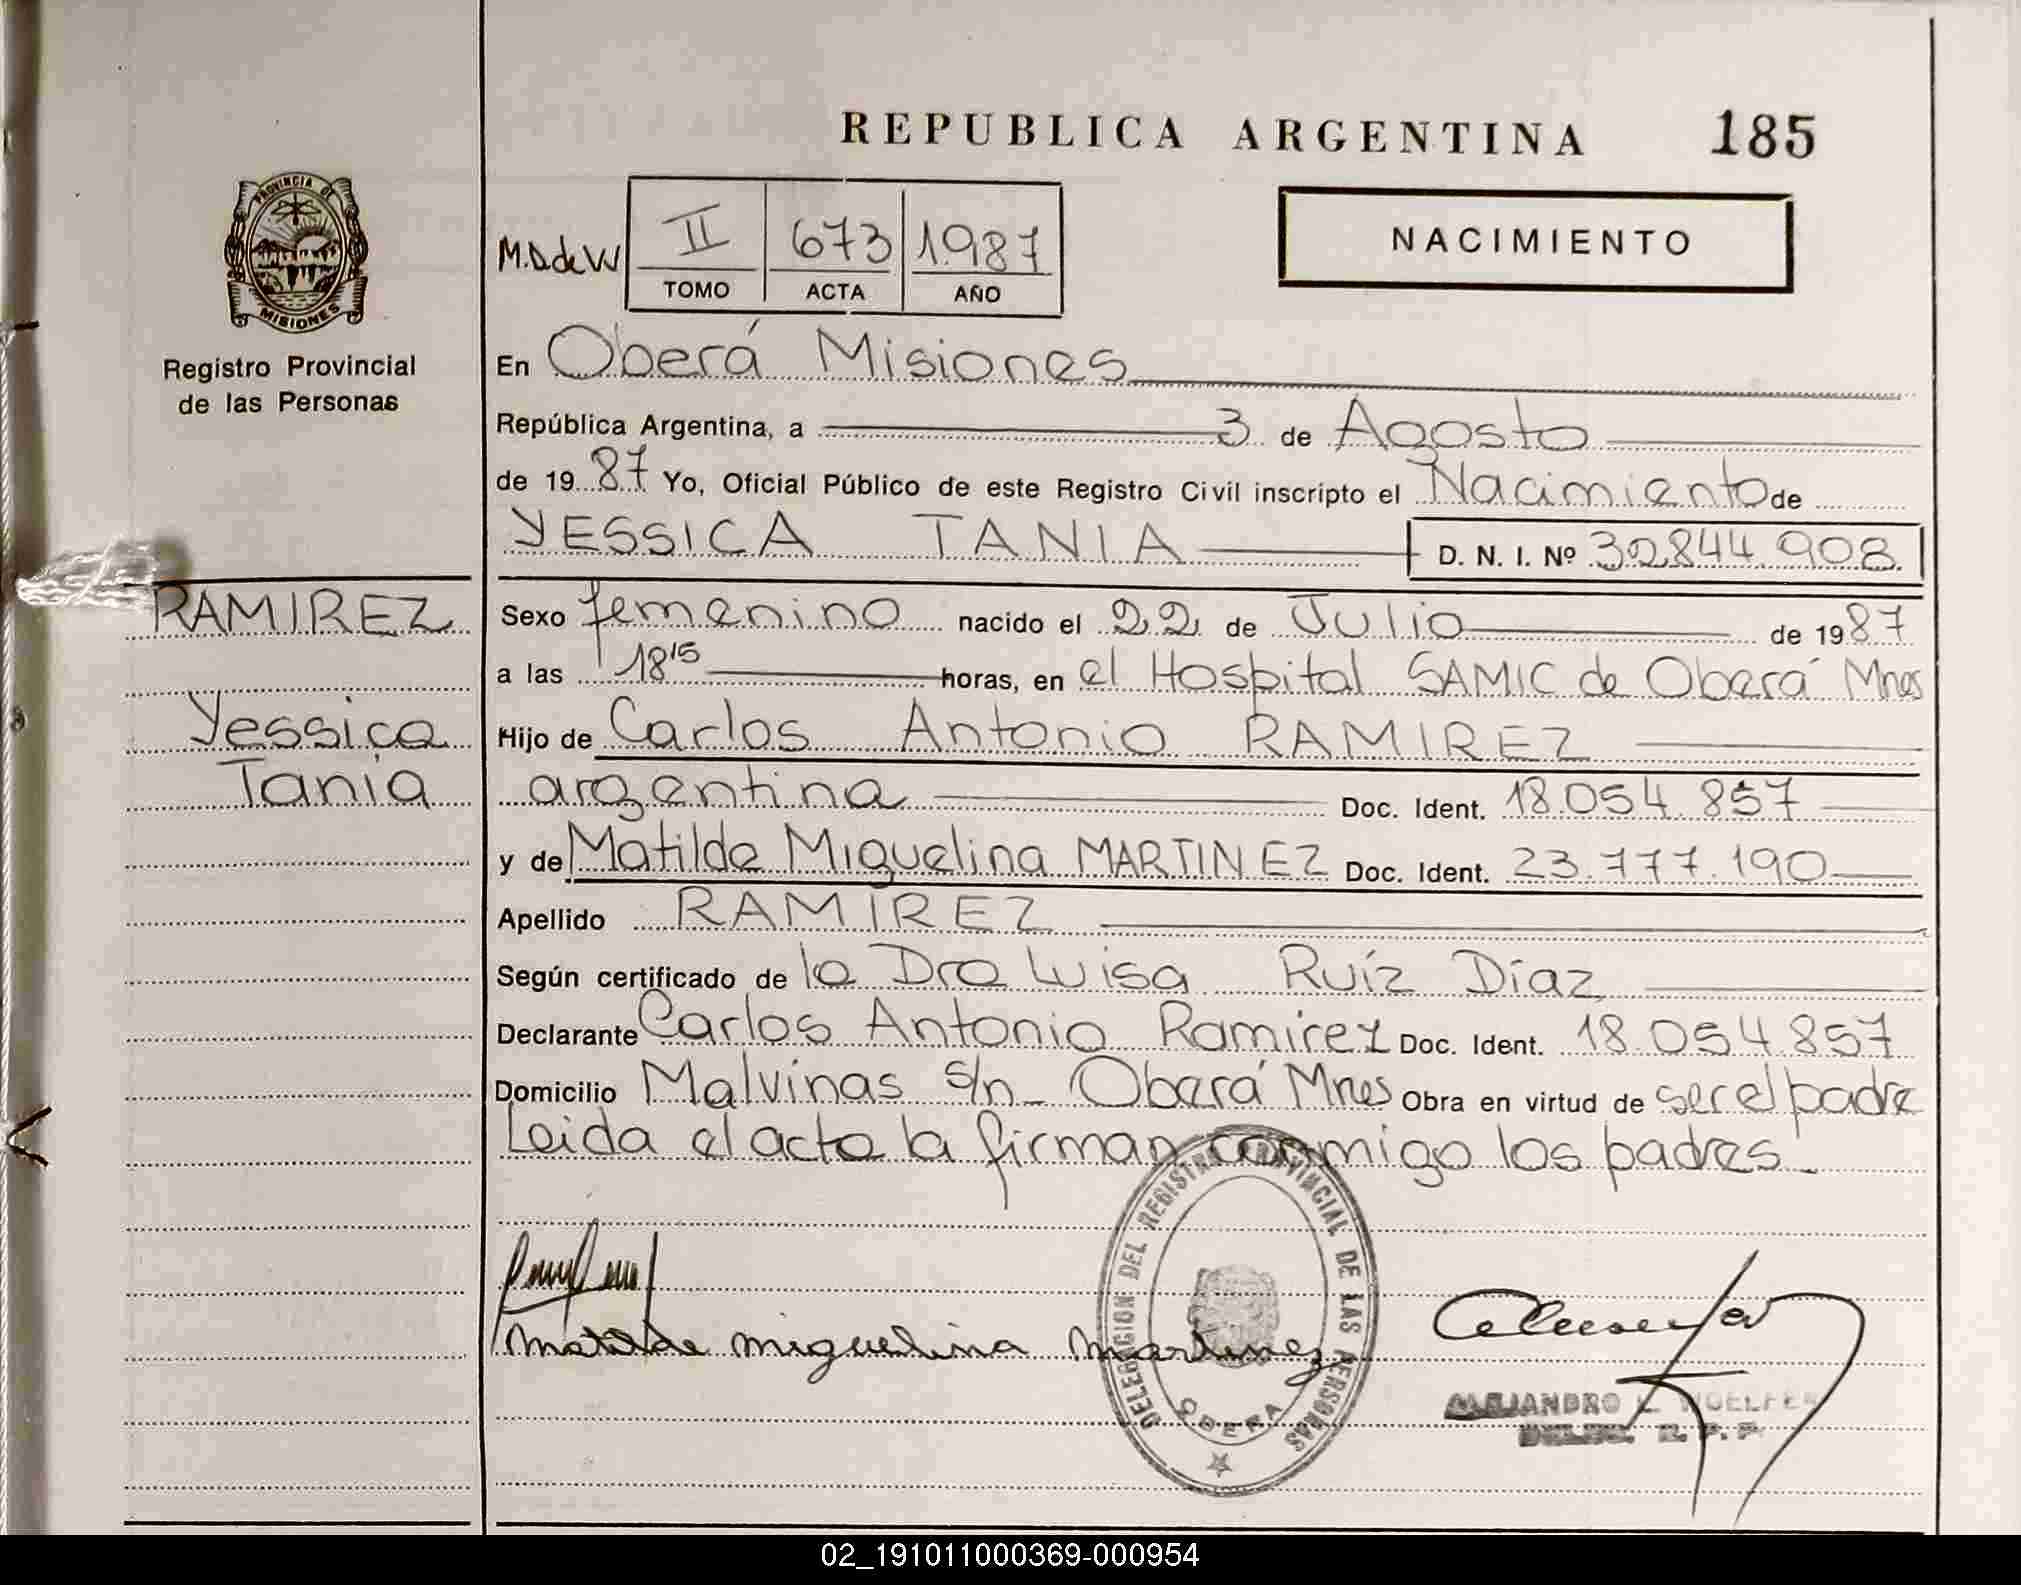 REPUBLICA ARGENTINA 185
PROVINCIA DE
MISIONES
Registro Provincial
de las Personas
M.D.de W
II 673 1987
TOMO ACTA AÑO
NACIMIENTO
En Oberá Misiones
República Argentina, a 3 de Agosto
de 1987 Yo, Oficial Público de este Registro Civil inscripto el Nacimiento de
YESSICA TANIA D. N. I. Nº 32.844.908
RAMIREZ
Yessica
Tania
Sexo femenino nacido el 22 de Julio de 1987
a las 18 15 horas, en el Hospital SAMIC de Oberá Mnes
Hijo de Carlos Antonio RAMIREZ
argentina Doc. Ident. 18.054.857
y de Matilde Miguelina MARTINEZ Doc. Ident. 23.777.190
Apellido RAMIREZ
Según certificado de la Dra Luisa Ruíz Díaz
Declarante Carlos Antonio Ramirez Doc. Ident. 18.054.857
Domicilio Malvinas s/n_ Oberá Mnes Obra en virtud de ser el padre
Leida el acta la firman conmigo los padres_
Matilde Miguelina Martinez
DELEGACION DEL REGISTRO PROVINCIAL DE LAS PERSONAS
OBERA
ALEJANDRO
R. P. P.
02_191011000369-000954